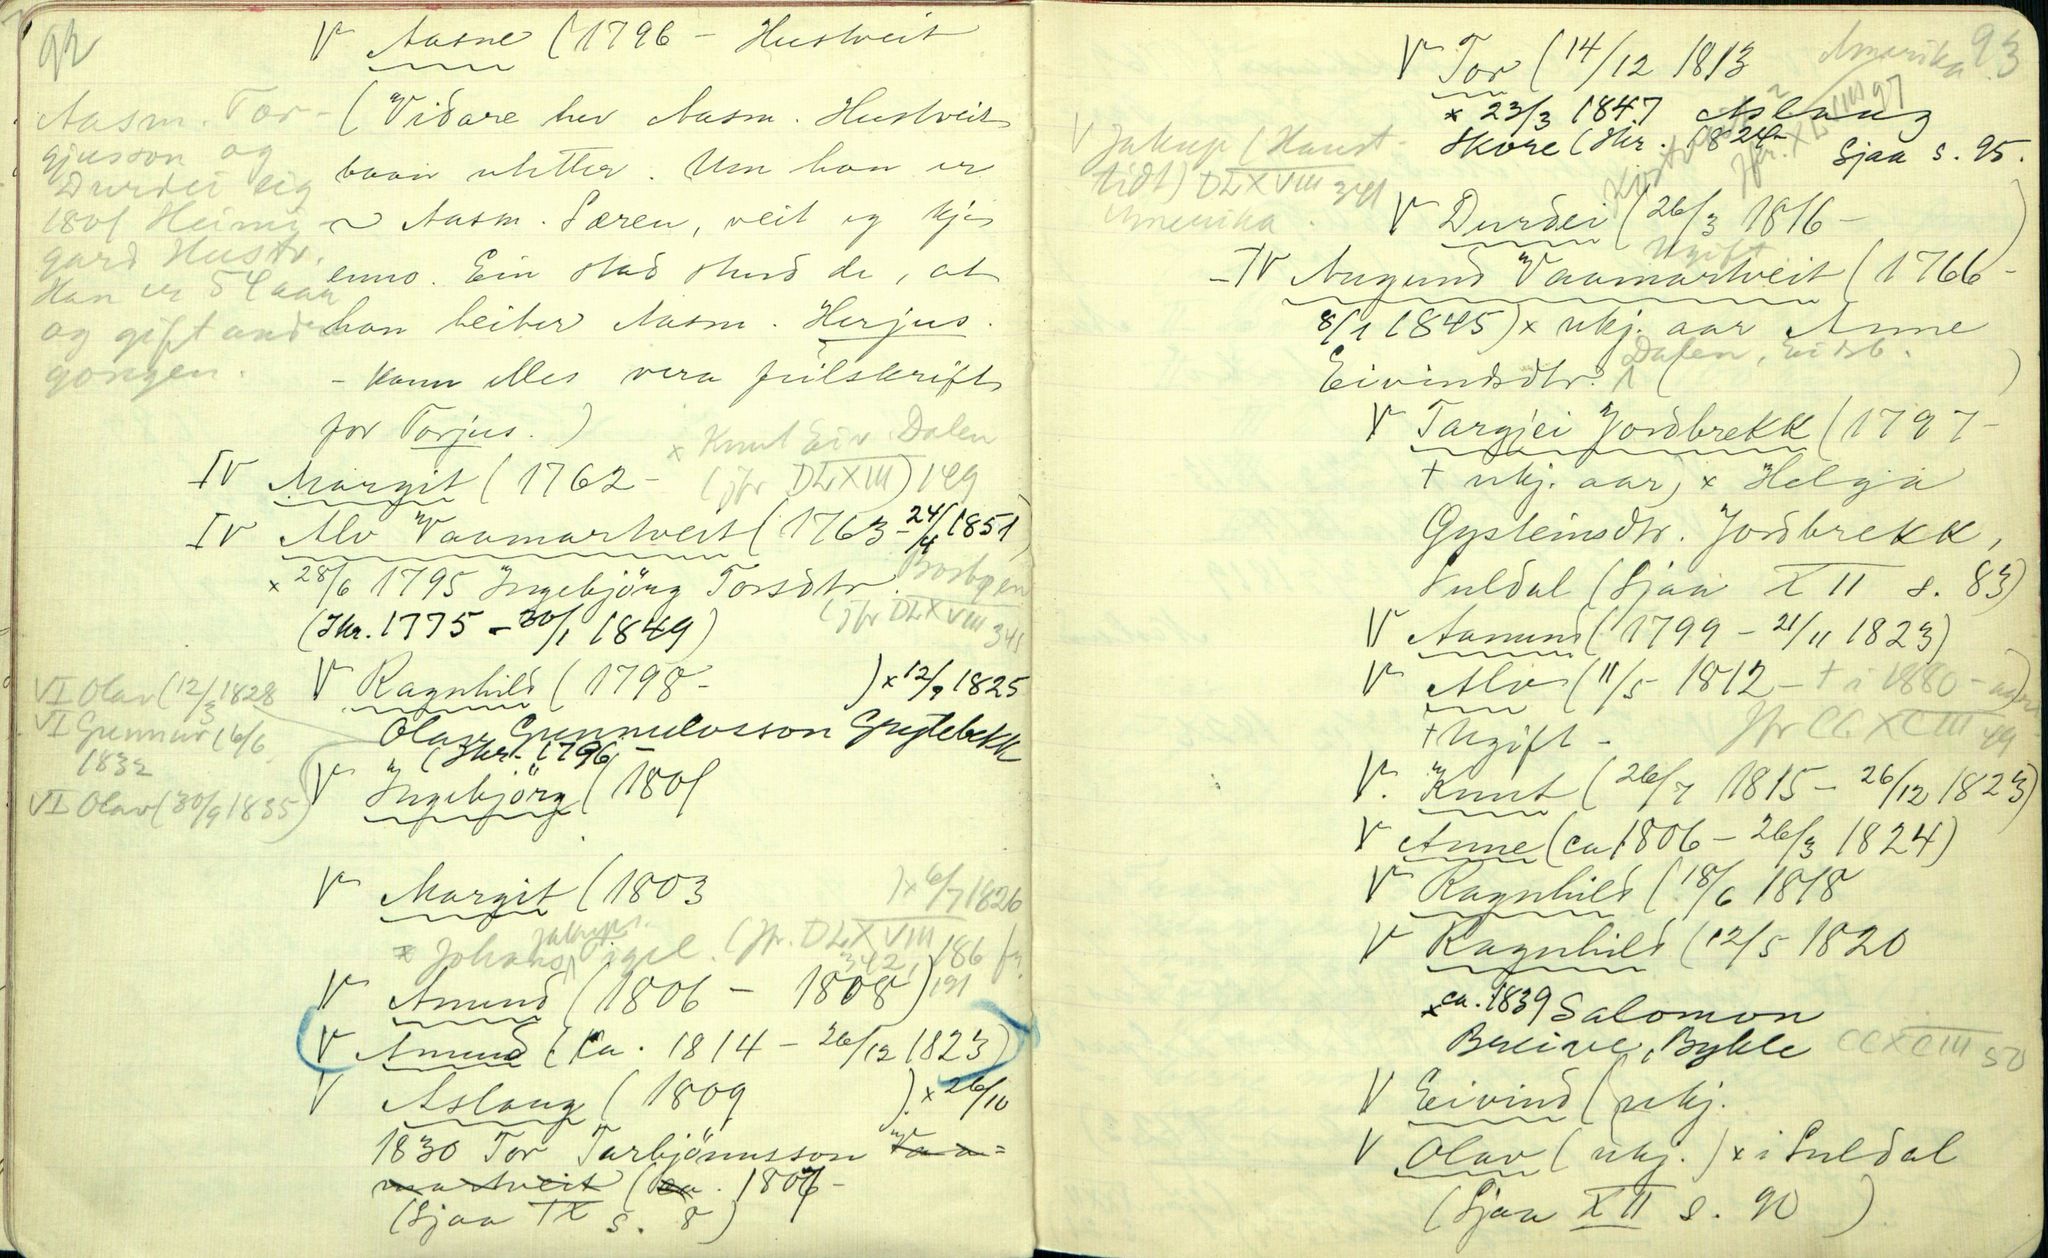 92
V Aasne (1796 – Hustveit
Aasm. Tor-
gjusson og
Durdei eig
1801 Heimi
gard Hustv.
Han er 54 aar
og gift andre
gongen.
(Vidare hev Aasm. Hustveit
baan uketter. Um han er
~ Aasm. Særen, veit eg kje
enno. Ein stad stend de, at
han heiter Aasm. Herjus.
– kann elles vera feilskrift
for Torjus.)
x Knut Eiv. Dalen
IV Margit (1762 – (jfr DLXIII) 149
IV Alv Vaamartveit (1763 – 24/4 1851)
x 28/6 1795 Ingebjörg Torsdtr.
(Jfr DLXVIII 341
(Skr. 1775 – 30/1 1849)
V Ragnhild (1798 – ) x 12/9 1825
Olav Gunnulvsson
(Skr. 1796 –
VI Olav (12/3 1828
VI Gunnar (6/6
1832
VI Olav (30/9 1835)
V Ingebjörg (1801
V Margit (1803 ) x 6/7 1826
x Johans (Jfr. DLXVIII
342, 186 fg.
V Amund (1806 – 1808) 191
(V Amund (Ca. 1814 – 26/12 1823)
V Aslaug (1809 ) x 26/10
1830 Tor Tarbjönnsson Vaa=
martveit (ca. 1807 –
(Sjaa IX s. 8)
93
Amerika
V Tor (14/12 1813
x 23/3 1847 Aslaug
Skore (Skr. 1824
Sjaa s. 95.
V Jakup (Haust-
tidt) DLXVIII 341
Amerika.
V Durdei (26/3 1816 – )
Ugift
– IV Augund Vaamartveit (1766 –
8/1 1845) x ukj. aar Anne
Dalen, Eidsb.
Eivindsdtr. ( )
V Targjei Jordbrekk (1797 –
+ ukj. aar) x Helga
Gysteinsdtr. Jordbrekk,
Suldal (Sjaa XII s. 83)
V Aamund (1799 – 21/11 1823)
V Alv (11/5 1812 – + i 1880-
+ Ugift – Jfr CCXCIII 49
V. Knut (26/7 1815 – 26/12 1823)
V Anne (ca 1806 – 26/3 1824)
V Ragnhild (18/6 1818
V Ragnhild (12/5 1820
x ca. 1839 Salomon
Breive, Bykle CCXCIII 50
V Eivind (ukj.
V Olav (ukj.) x i Suldal
(Sjaa XII s. 90 )